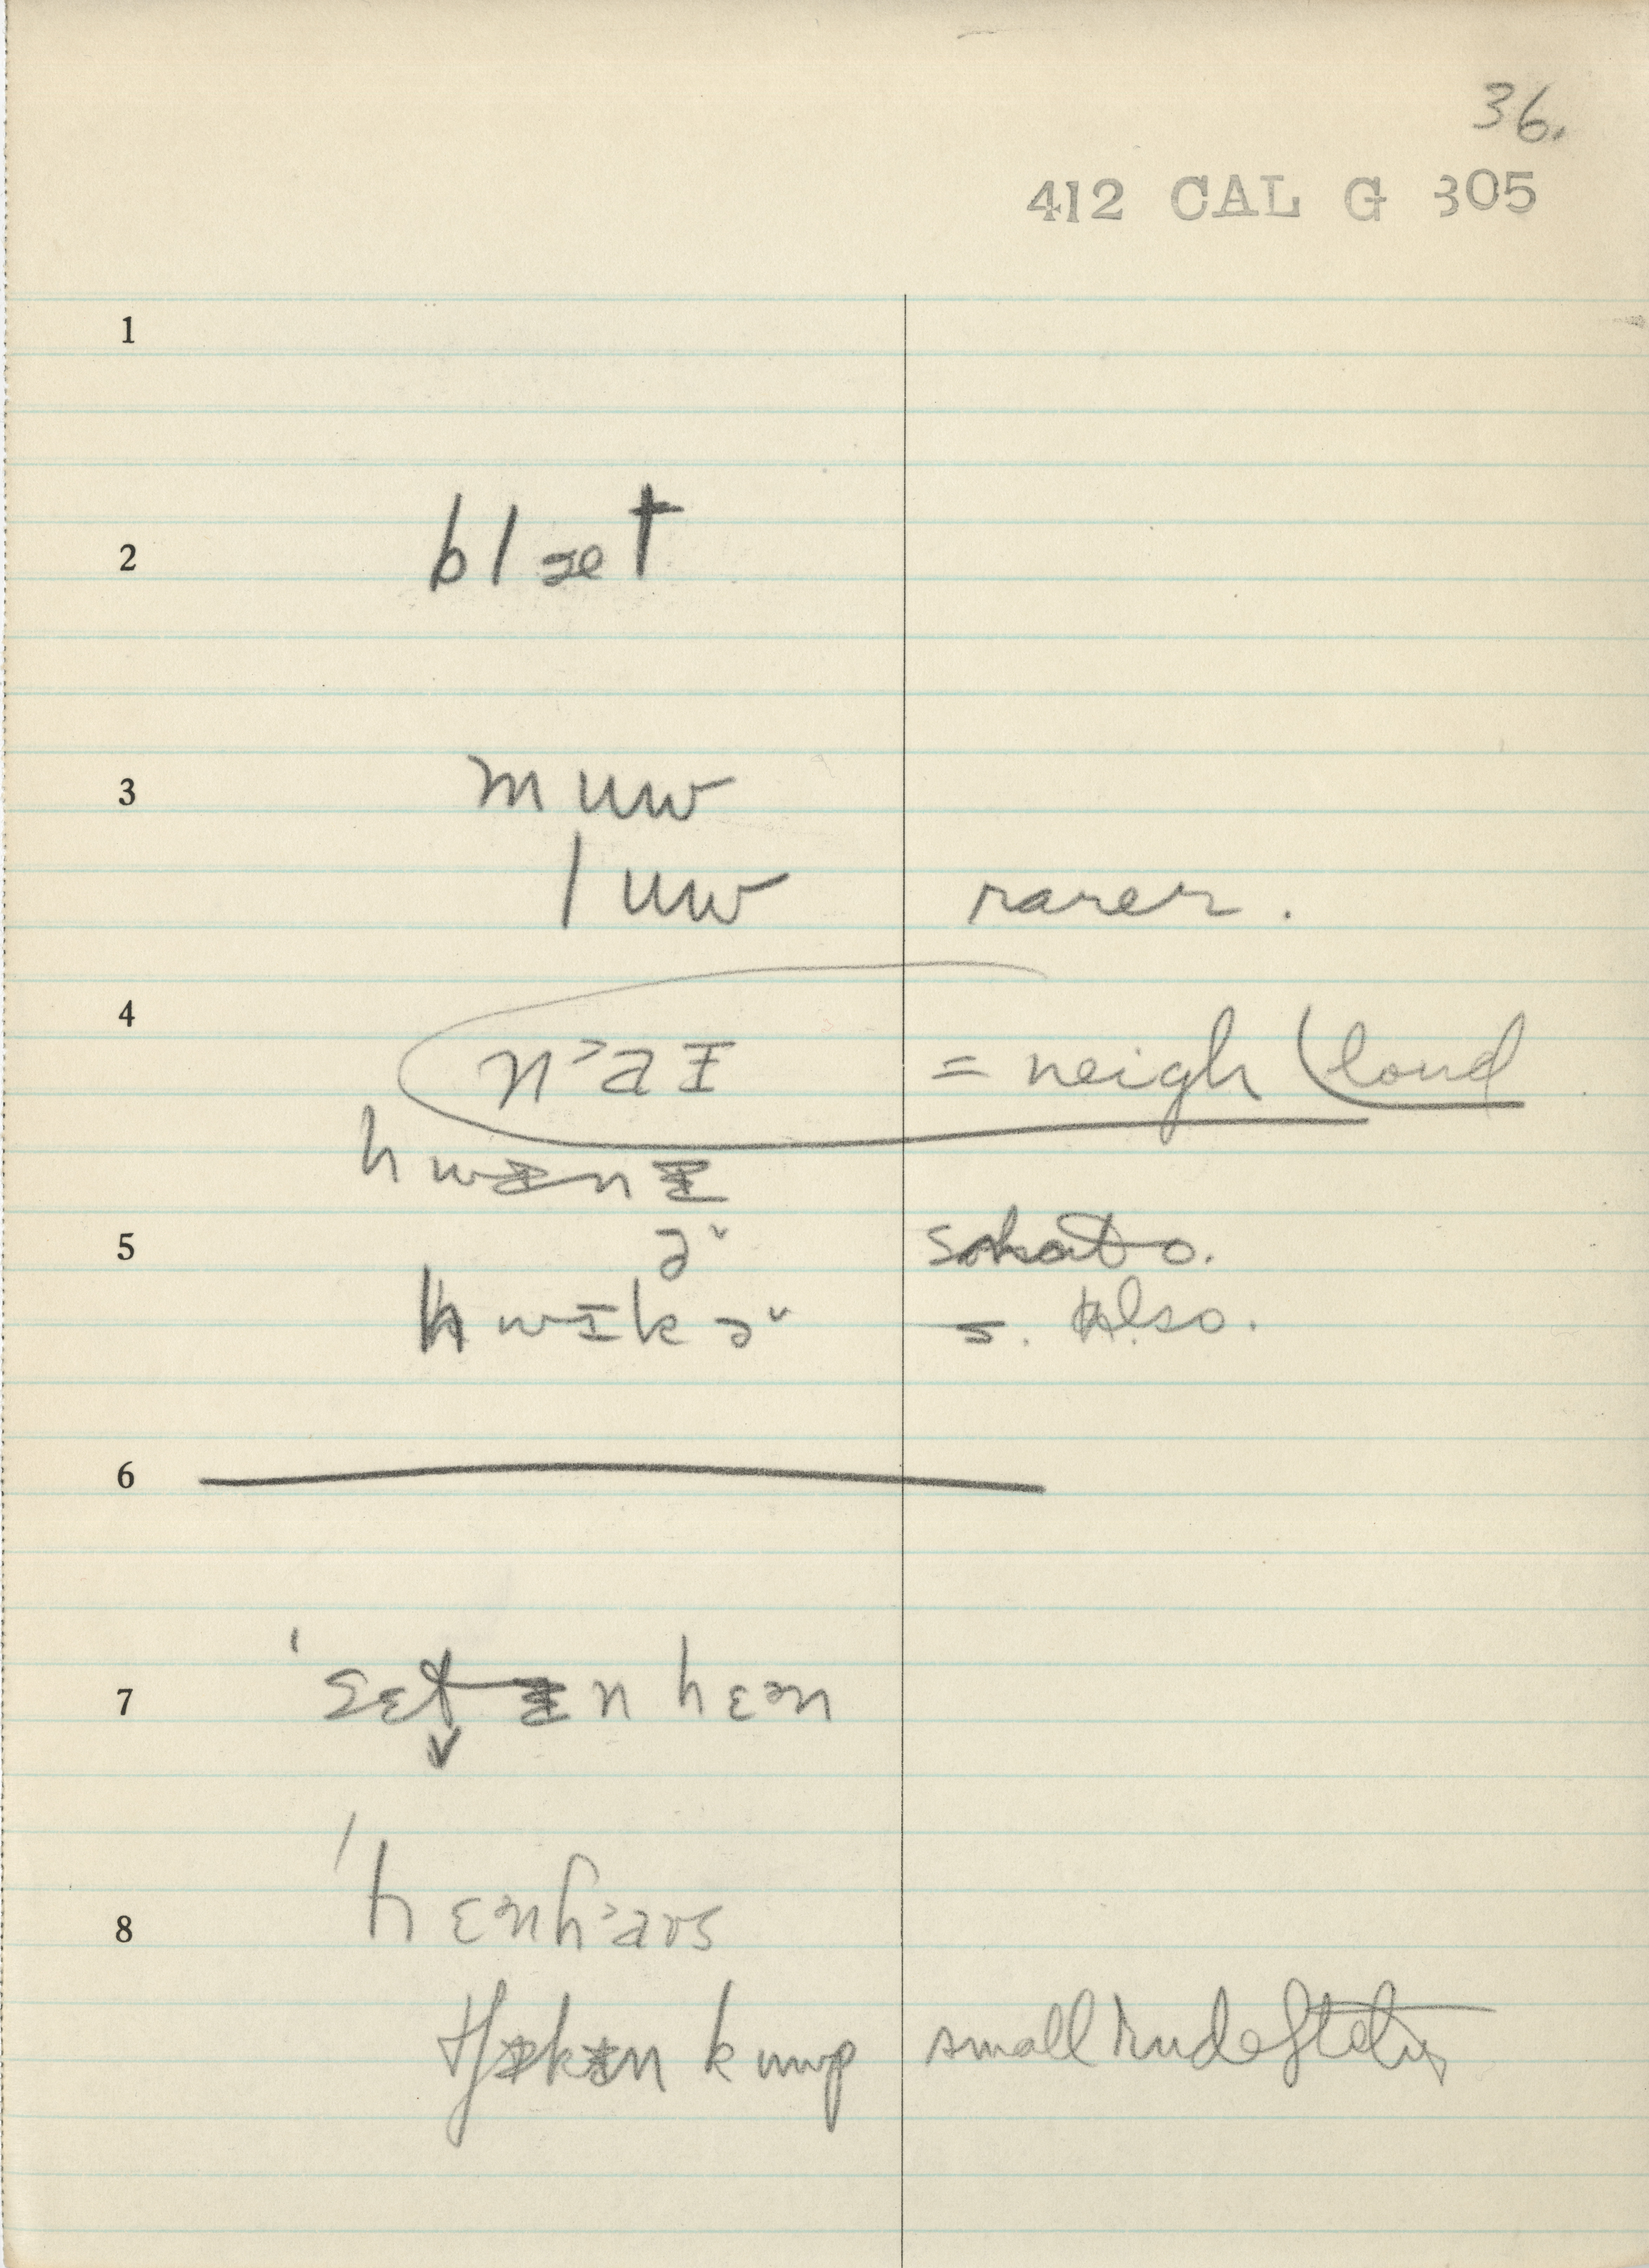 36.
412 CAL G 305
1
2 blæt
3 m uw
l uw rarer.
4 n˃aɪ = neigh (loud
hwɪnɪ
5 ə˅
hwɪkə˅ s. Also.
6
7 'sɛt ɪn hɛən
8 'hɛənh˃aʊs
tʃɪkɪn kuwp small rude